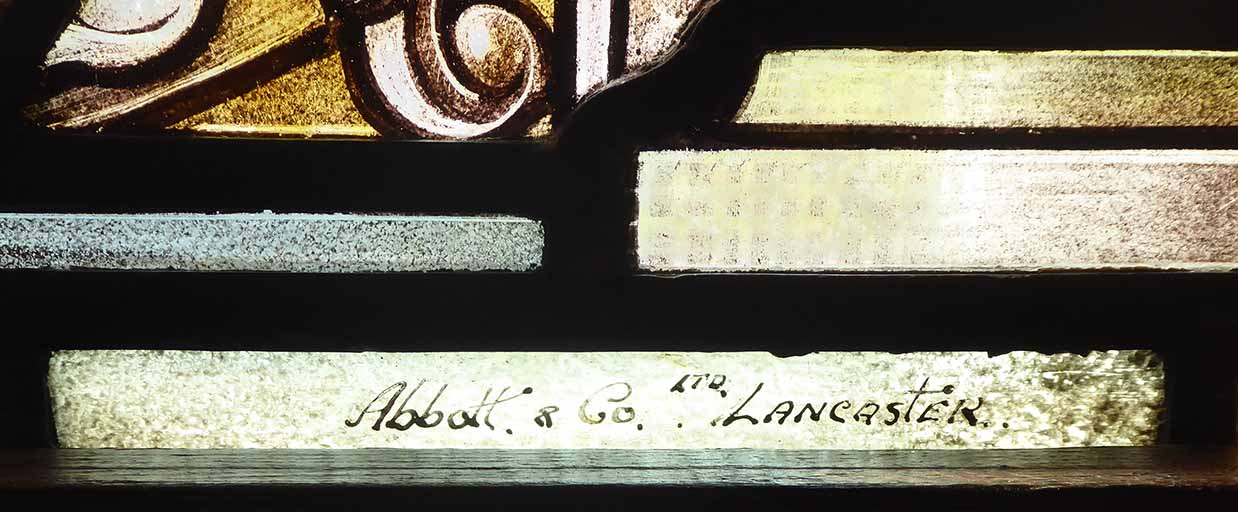 Abbott. & Co. LTD. LANCASTER..